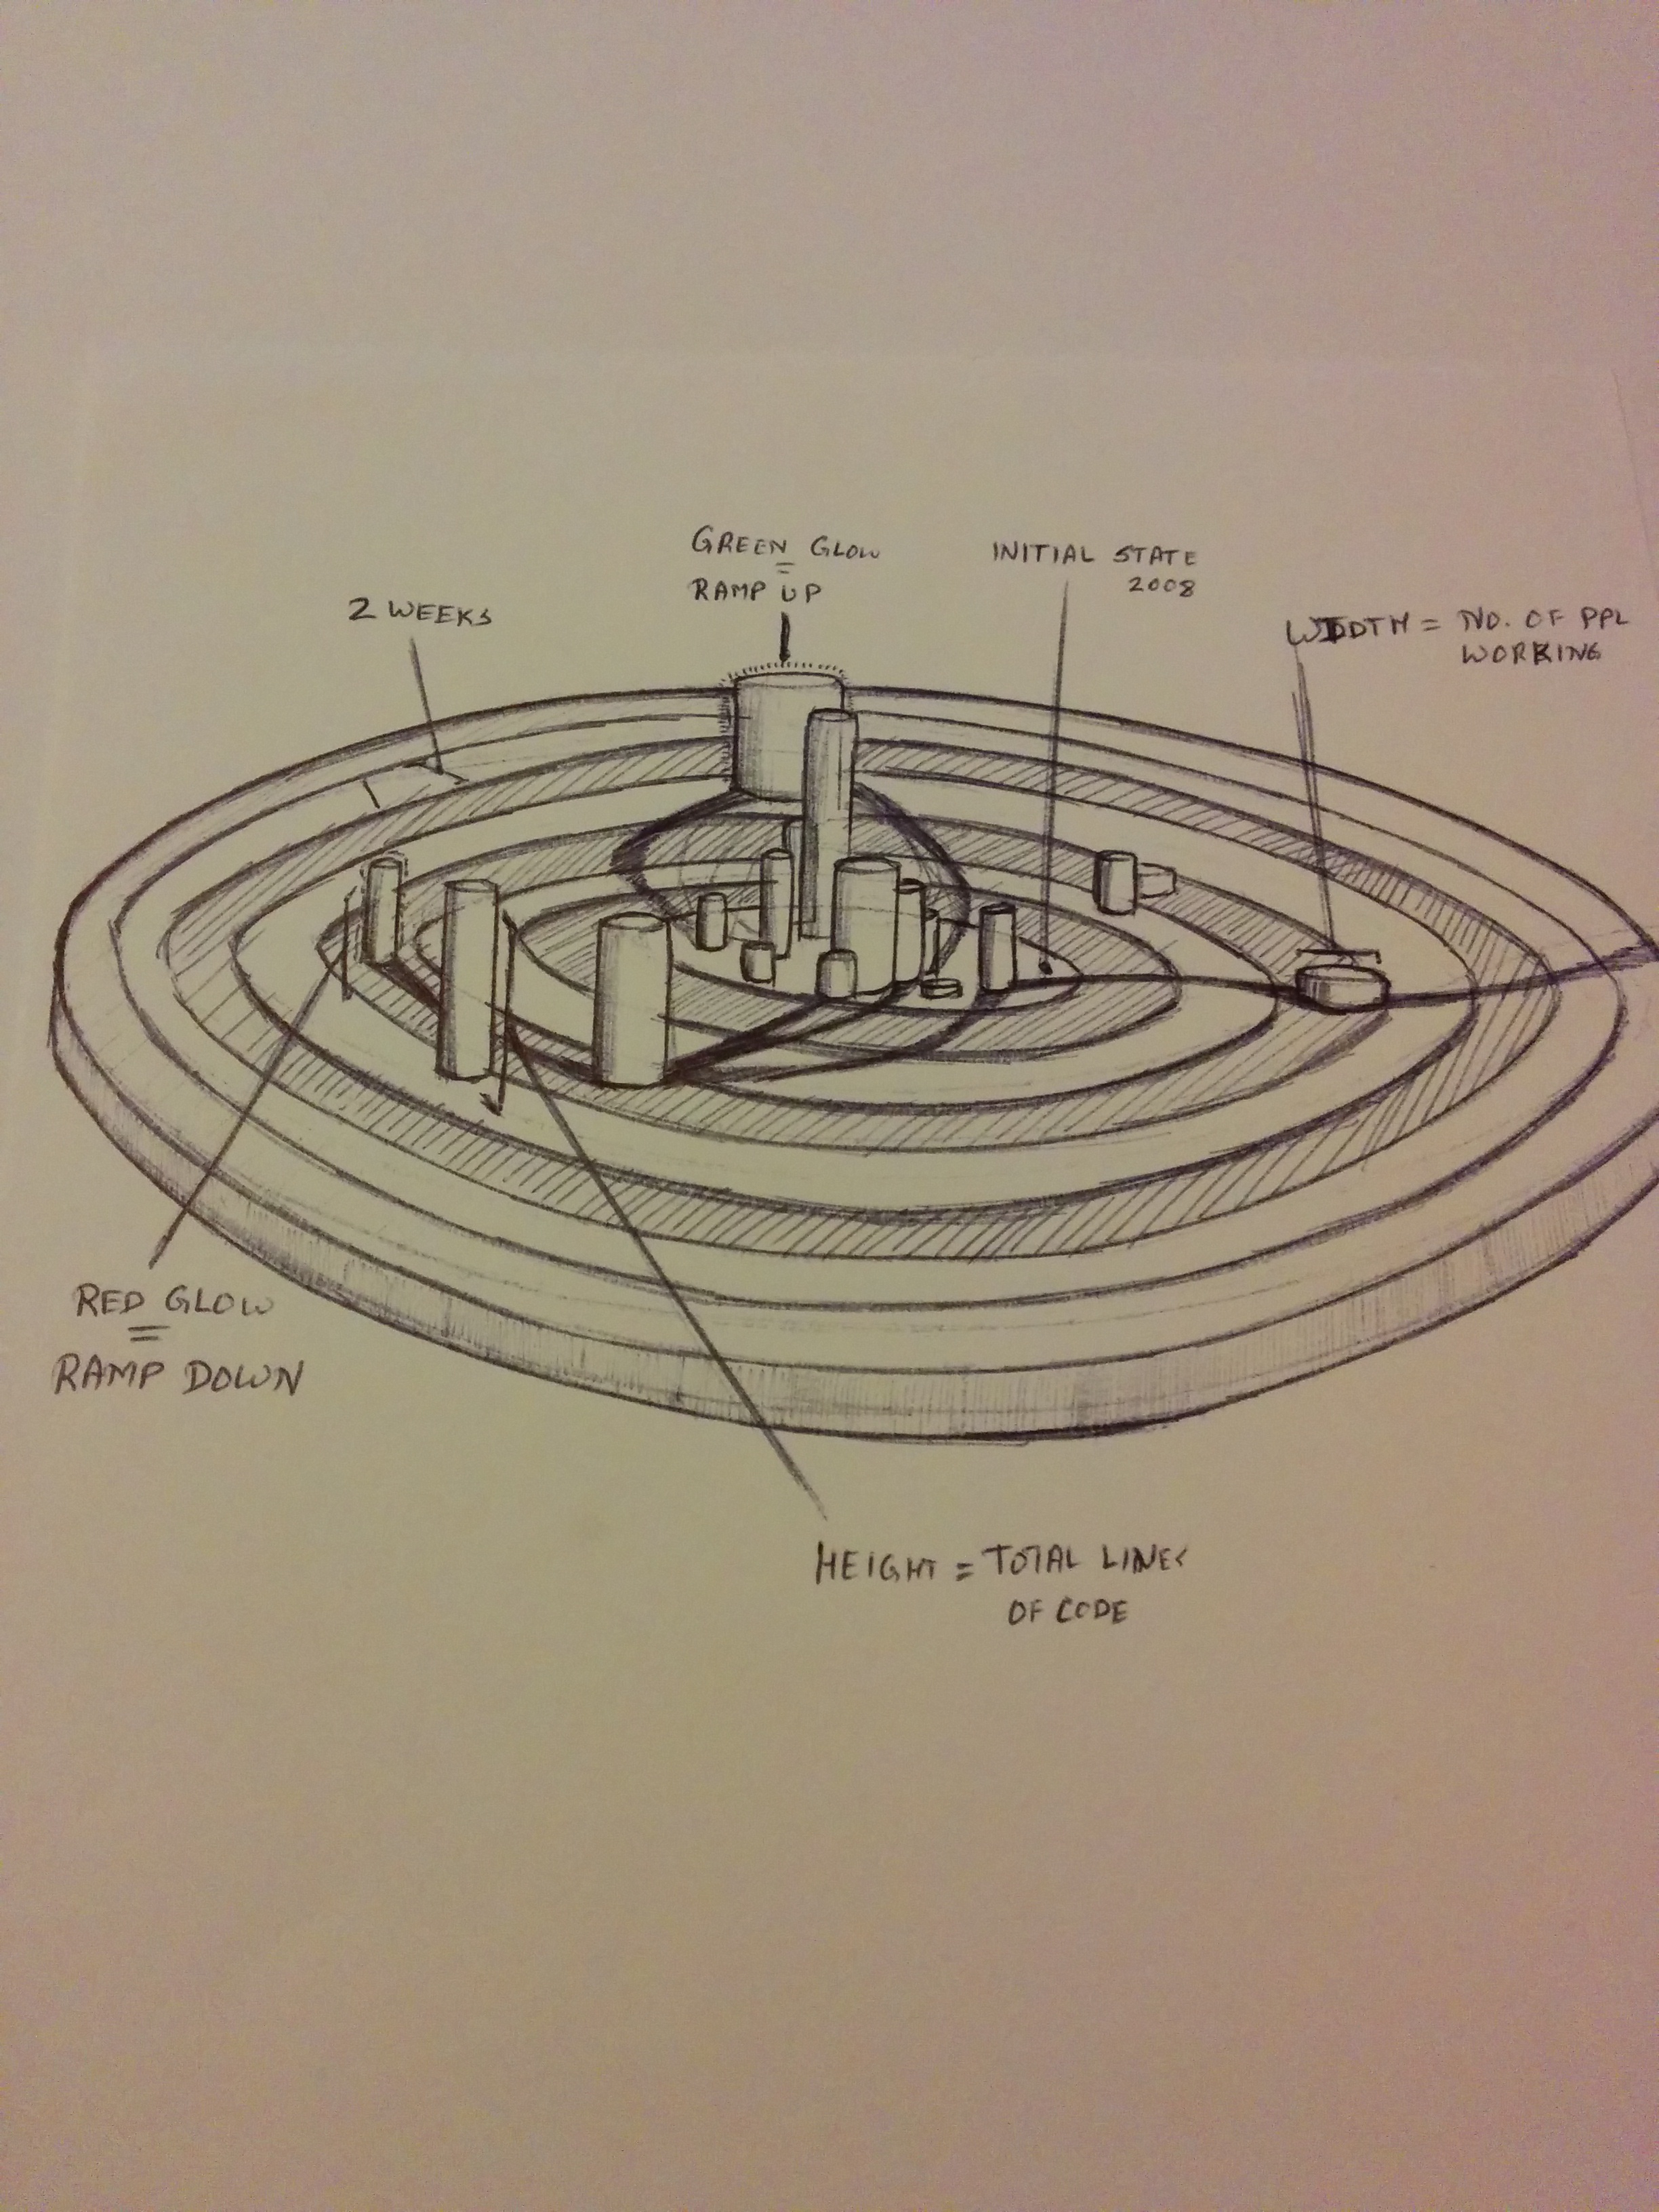 GREEN GLOW
=
RAMP UP
INITIAL STATE
2008
2 WEEKS
WIDTH = NO. OF PPL
WORKING
RED GLOW
=
RAMP DOWN
HEIGHT = TOTAL LINES
OF CODE